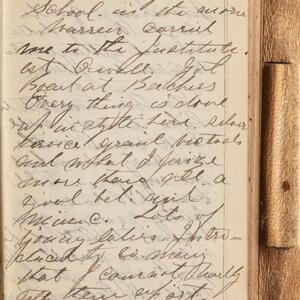 School in the morn
Warren carried
me to the Institute
at Owwell. Got
Board at Beebees
Every thing is done
up in style here silver
service grand victuals
and what I prize
more than all a
good bet. and
Music. Lots of
young ladies. Intro-
duced to so many
that I cannot hardly
tell them apart